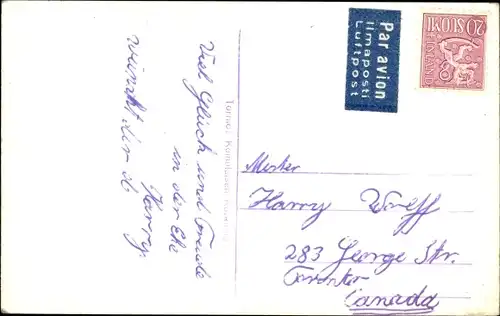 Viel Glück und Freude
in der Ehe
wünscht dir d
Harry
Par avion
Ilmaposti
Luftpost
20 SUOMI
FINLAND
Mister
Harry Wolff
283 George Str.
Toronto
Canada